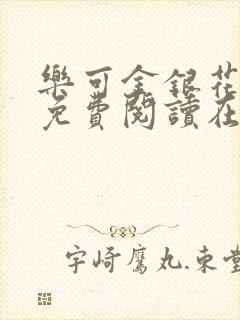 樂可金銀花
免費閱讀在
宇崎鷹丸.東堂